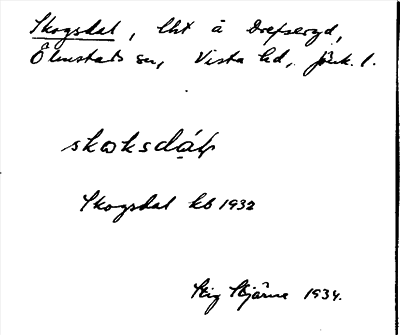 Skogsdal, lht å Drefseryd,
Ölmstads sn, Vista hd, Jönk. l.
skωksdáḷ
Skogsdal kb 1932
Stig Stjärne 1934.